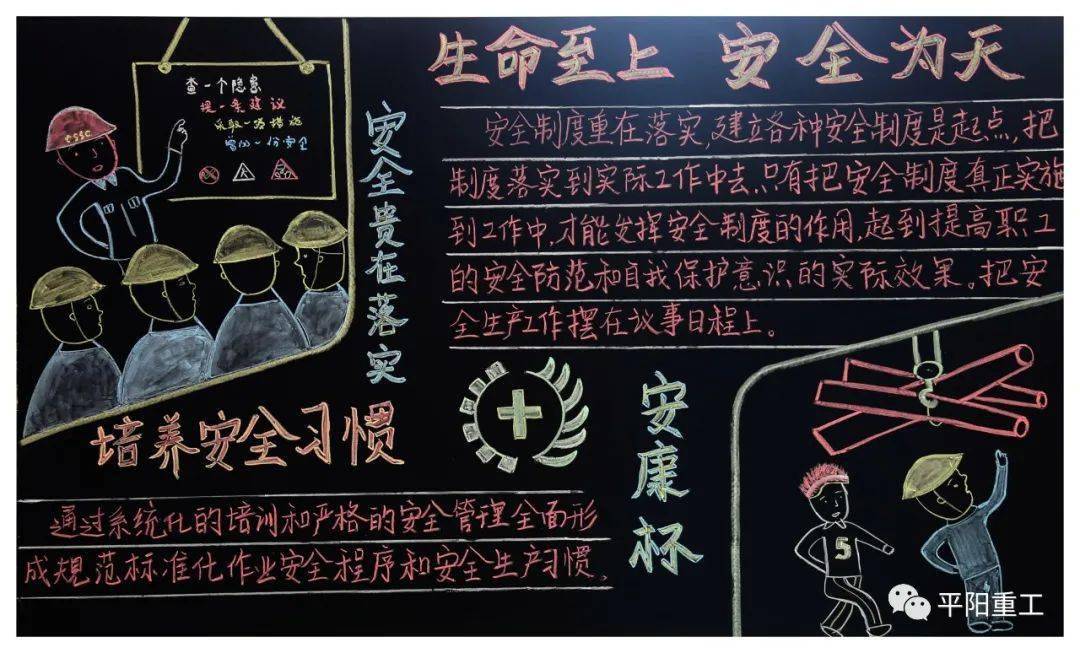 生命至上 安全为天
安全制度重在落实,建立各种安全制度是起点,把
制度落实到实际工作中去,只有把安全制度真正实施
到工作中,才能发挥安全制度的作用,起到提高职工
的安全防范和自我保护意识的实际效果。把安
全生产工作摆在议事日程上。
查一个隐患
提一条建议
采取一项措施
增加一份安全
CSSC
安全贵在落实
培养安全习惯
通过系统化的培训和严格的安全管理全面形
成规范标准化作业安全程序和安全生产习惯。
安康杯
5
平阳重工